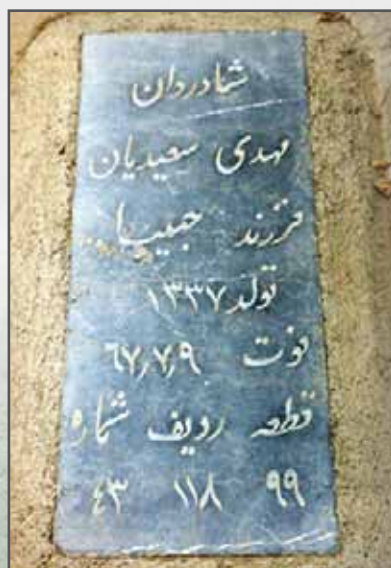 شادروان
مهدی سعیدیان
فرزند حبیب ا...
تولد ۱۳۳۷
فوت ۶۷٫۷٫۹
قطعه ردیف شماره
۹۹ ۱۱۸ ۴۳